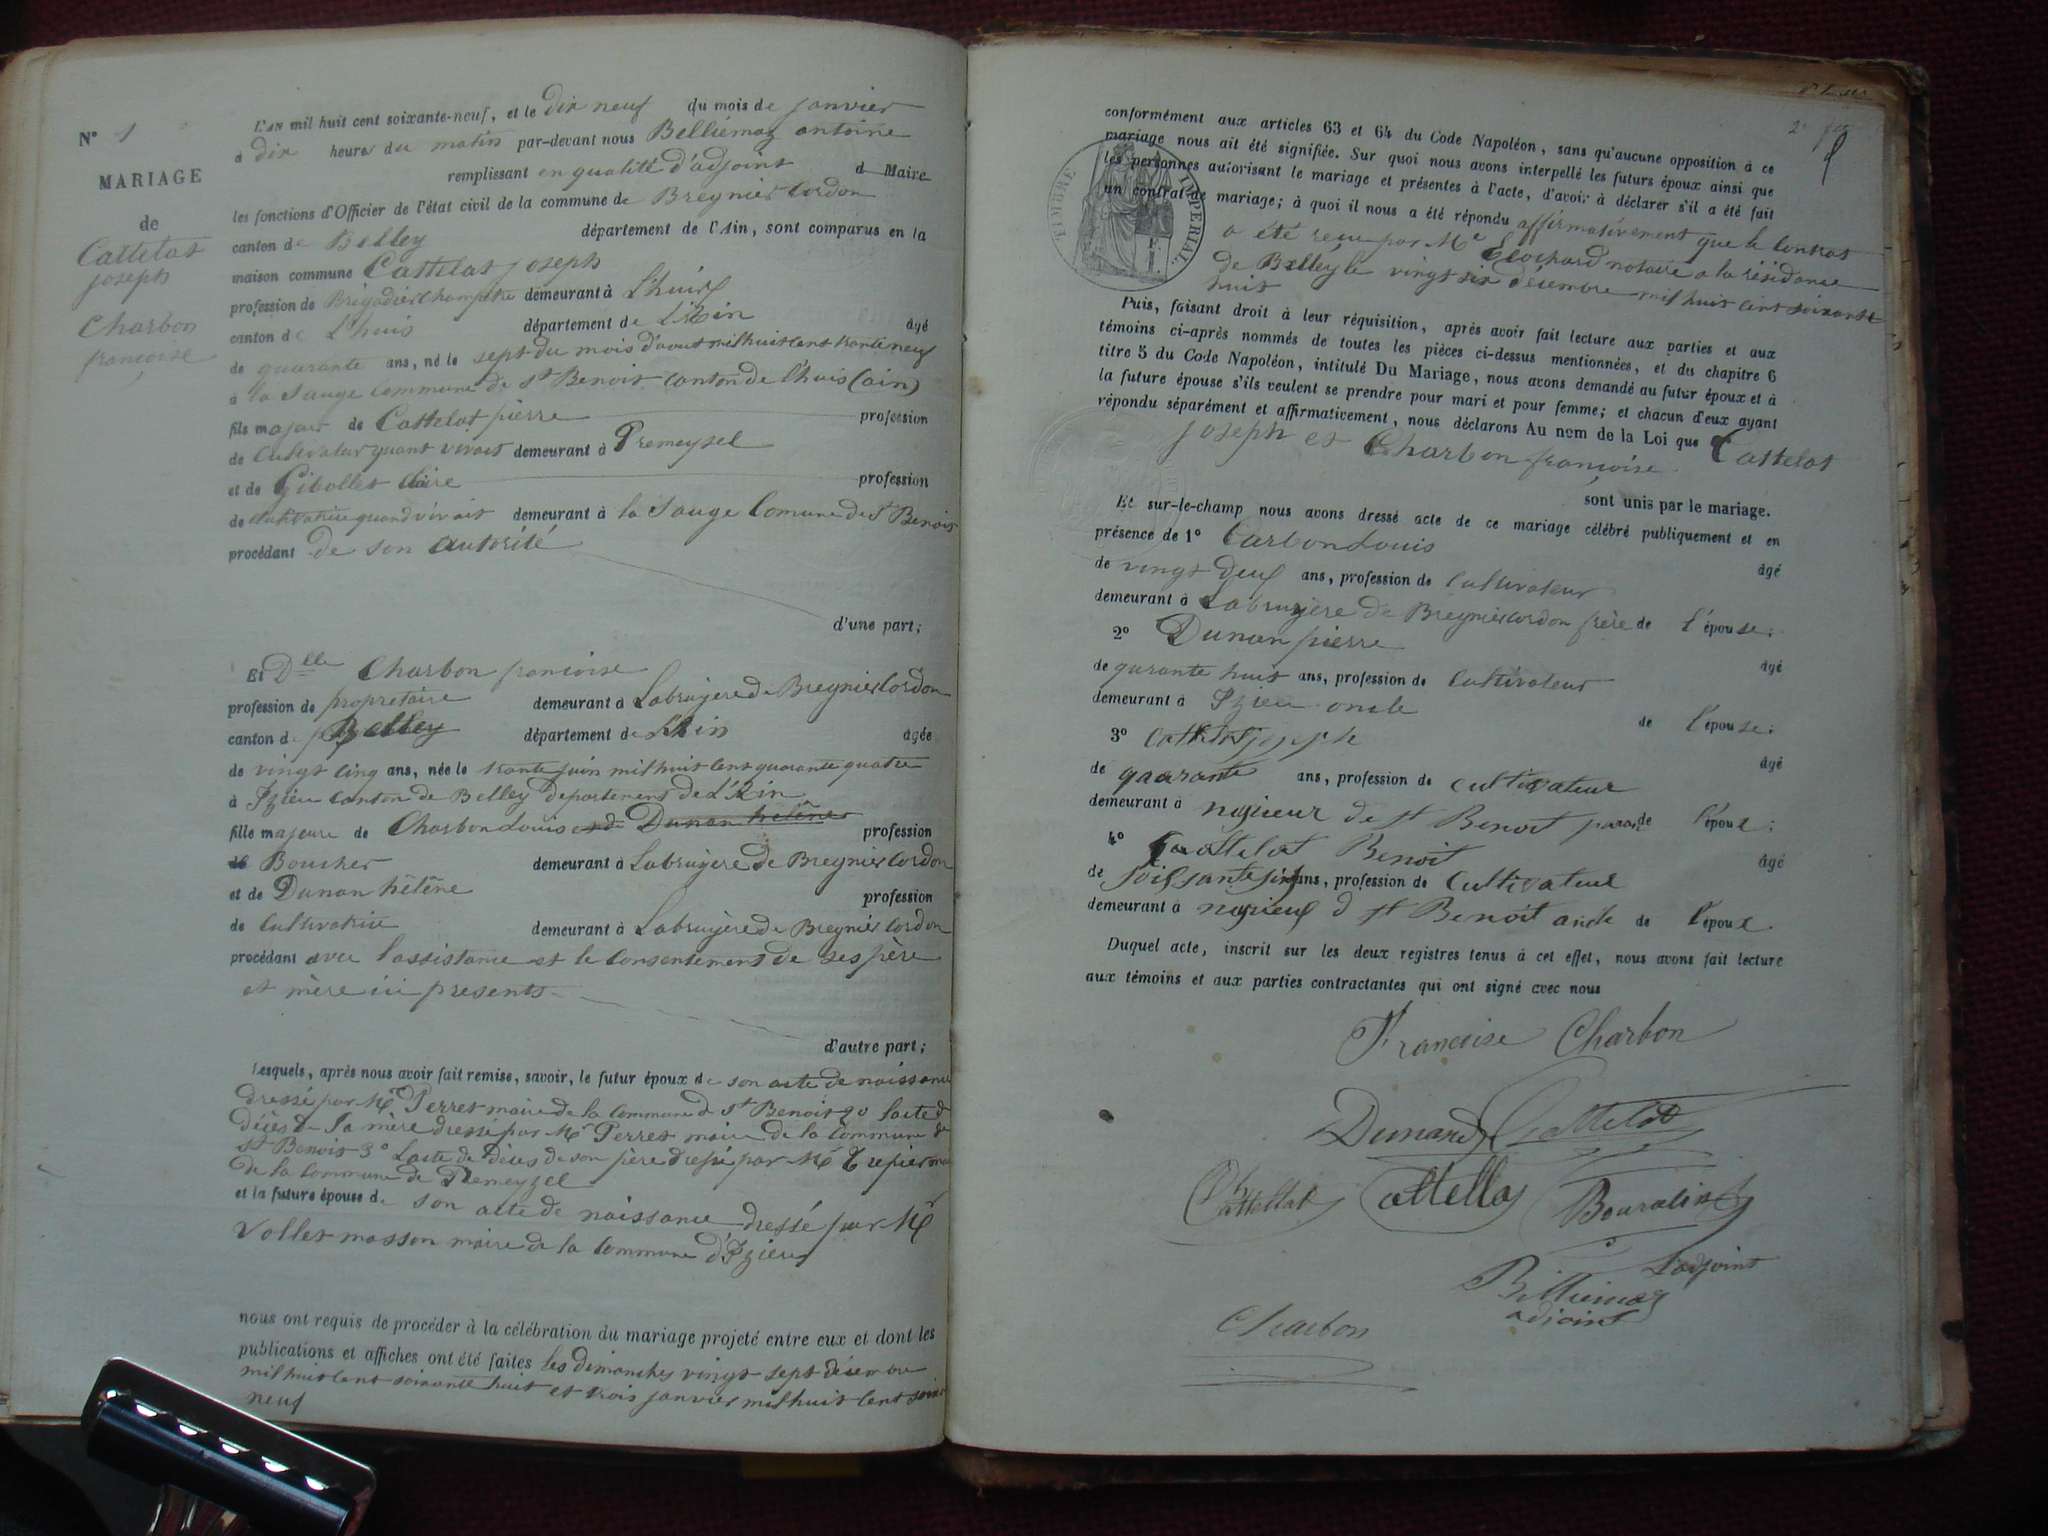 N° 1
MARIAGE
de
Cattelat
joseph
Charbon
françoise
L'AN mil huit cent soixante-neuf, et le dix neuf du mois de janvier
à dix heures du matin par-devant nous Belliemaz antoine
remplissant en qualité d'adjoint d Maire
les fonctions d'Officier de l'état civil de la commune de Bregnier Cordon
canton de Belley département de l'Ain, sont comparus en la
maison commune Cattelat joseph
profession de Brigadier Champetre demeurant à L'huis
canton de L'huis département de L'Ain âgé
de quarante ans, né le sept du mois d'aout mil huit cent trente neuf
à la Sauge commune de st Benoit canton de l'huis (ain)
fils majeur de Cattelat pierre profession
de Cultivateur quant vivait demeurant à Premeyzel
et de Gibollet claire profession
de cultivatrice quand vivait demeurant à la Sauge Comune de St Benoit
procédant de son autorité
d'une part;
Et Dlle Charbon françoise
profession de propretaire demeurant à Labruyere de Bregnier Cordon
canton de Belley département de L'Ain âgée
de vingt cinq ans, née le trente juin mil huit cent quarante quatre
à Izieu canton de Belley departement de L'Ain
fille majeure de Charbon Louis et de Dunan hélène profession
de Boucher demeurant à Labruyère de Bregnier Cordon
et de Dunan hélène profession
de Cultivatrice demeurant à Labruyère de Bregnier Cordon
procédant avec l'assistance et le consentement de ses père
et mère ici presents
d'autre part;
Lesquels, après nous avoir fait remise, savoir, le futur époux de son acte de naissance
dressé par Mr Perret maire de la commune d St Benoit 2o l'acte d
décès de sa mère dressé par Mr Perret maire de la commune de
St Benoit 3° L'acte de décès de son père dressé par Mr Trepier
de la commune de Premeyzel
et la future épouse de son acte de naissance dressé par Mr
Vollet masson maire de la commune d'Izieu
nous ont requis de procéder à la célébration du mariage projeté entre eux et dont les
publications et affiches ont été faites les dimanches vingt sept décembre
mil huit cent soixante huit et trois janvier mil huit cent soix
neuf
conformément aux articles 63 et 64 du Code Napoléon, sans qu'aucune opposition à ce
mariage nous ait été signifiée. Sur quoi nous avons interpellé les futurs époux ainsi que
les personnes autorisant le mariage et présentes à l'acte, d'avoir à déclarer s'il a été fait
un contrat de mariage; à quoi il nous a été répondu affirmativement que le Contrat
TIMBRE IMPERIAL.
a été recu par Me notaire a la résidence
de Belley le vingt six décembre mil huit cent soixante
huit
Puis, faisant droit à leur réquisition, après avoir fait lecture aux parties et aux
témoins ci-après nommés de toutes les pièces ci-dessus mentionnées, et du chapitre 6
titre 5 du Code Napoléon, intitulé Du Mariage, nous avons demandé au futur époux et à
la future épouse s'ils veulent se prendre pour mari et pour femme; et chacun d'eux ayant
répondu séparément et affirmativement, nous déclarons Au nom de la Loi que Cattelat
joseph et Charbon françoise
sont unis par le mariage.
Et sur-le-champ nous avons dressé acte de ce mariage célébré publiquement et en
présence de 1° Carbon Louis âgé
de vingt deux ans, profession de Cultivateur
demeurant à Labruyere de Bregnier Cordon frère de l'épouse;
2° Dunan pierre âgé
de qurante huit ans, profession de Cultivateur
demeurant à Izieu oncle de l'épouse;
3° Cattelat joseph âgé
de quarante ans, profession de cultivateur
demeurant à de st Benoit de l'époux;
4° Cattelat Benoit âgé
de ans, profession de cultivateur
demeurant à d st Benoit oncle de l'époux.
Duquel acte, inscrit sur les deux registres tenus à cet effet, nous avons fait lecture
aux témoins et aux parties contractantes qui ont signé avec nous
Francoise Charbon
Dunand Cattelat
Cattellat Cattella Bouralin
L'adjoint
Billiemaz
adjoint
Charbon